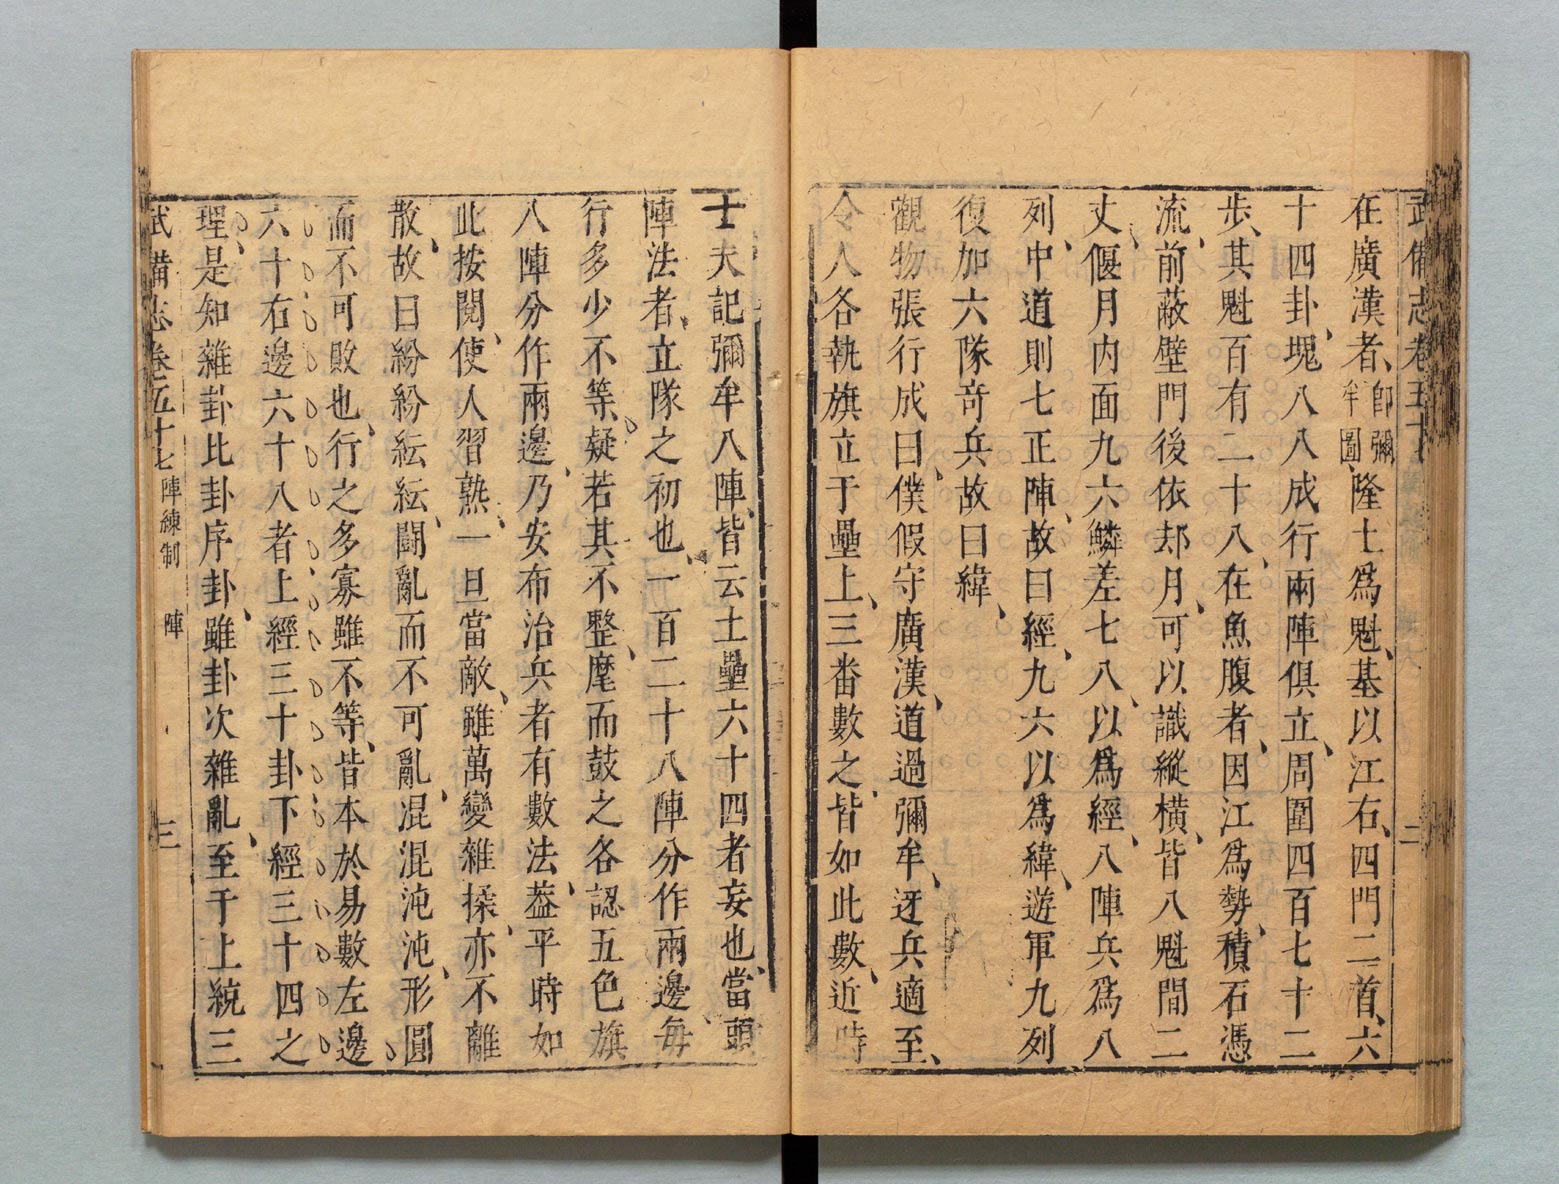 武備志卷五十 二
在廣漢者、卽彌牟圖、隆士爲魁、基以江右、四門二首、六
十四卦、塊八八成行、兩陣俱立、周圍四百七十二
步、其魁百有二十八、在魚腹者、因江爲勢、積石憑
流、前蔽壁門、後依却月、可以識縱橫、皆八魁間二
丈、偃月内面九六鱗差七八、以爲經、八陣兵爲八
列、中道則七正陣、故曰經、九六以爲緯、遊軍九列
復加六隊奇兵、故曰緯、
觀物張行成曰、僕假守廣漢、道過彌牟、迓兵適至、
令人各執旗立于壘上、三番數之、皆如此數、近時
士夫記彌牟八陣、皆云土壘六十四者妄也、當頭
陣法者、立隊之初也、一百二十八陣分作兩邊、每
行多少不等、疑若其不整、麾而鼓之各認五色旗
八陣分作兩邊、乃安布治兵者有數法、葢平時如
此按閱、使人習熟、一旦當敵、雖萬變雜揉、亦不離
散、故曰紛紛紜紜、鬪亂而不可亂、混混沌沌、形圓
而不可敗也、行之多寡雖不等、皆本於易數左邊
六十右邊六十八者上經三十卦下經三十四之
理、是知雜卦比卦序卦、雖卦次雜亂、至于上統三
武備志卷五十七 陣練制 陣 三